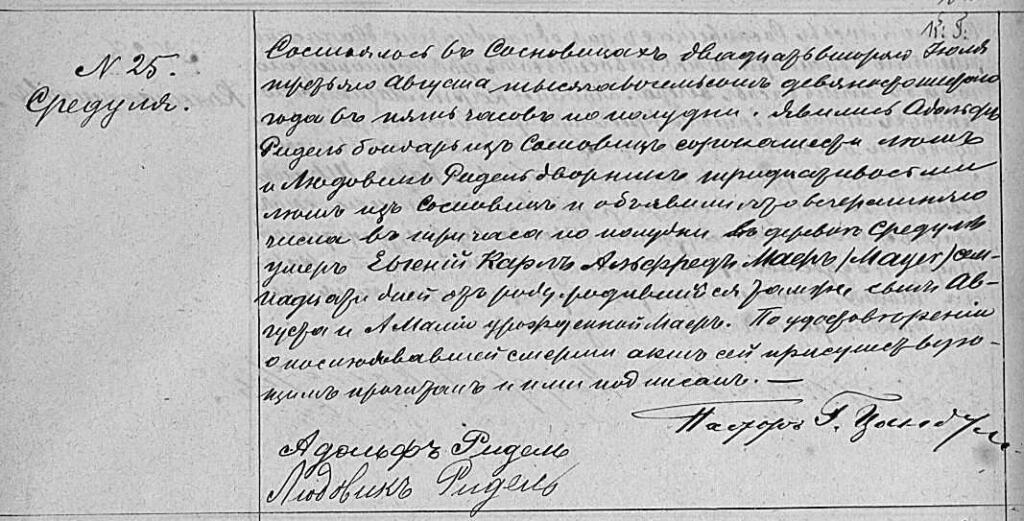 N 25.
Средуля.
Состоялось въ Сосновицахъ двадцать второго Іюля
третьяго Августа тысяча восемьсотъ девяносто шестого
года въ пять часовъ по полудни. Явились Адольфъ
Ридель бондарь изъ Сосновицъ сорока шести лѣтъ
и Людовикъ Ридель дворникъ тридцати лѣтъ
изъ Сосновицъ и объявили что вчерашняго
числа въ три часа по полудни въ деревнѣ Средулѣ
умеръ Евгеній Карлъ Альфредъ Маеръ /Mayer/ сем-
надцати дней отъ роду родившійся тамже сынъ Ав-
густа и Амаліи урожденной Маеръ. По удостовѣреніи
о послѣдовавшей смерти актъ сей присутствую-
щимъ прочитанъ и ими подписанъ. —
Пасторъ Г.
Адольфъ Ридель
Людовикъ Ридель